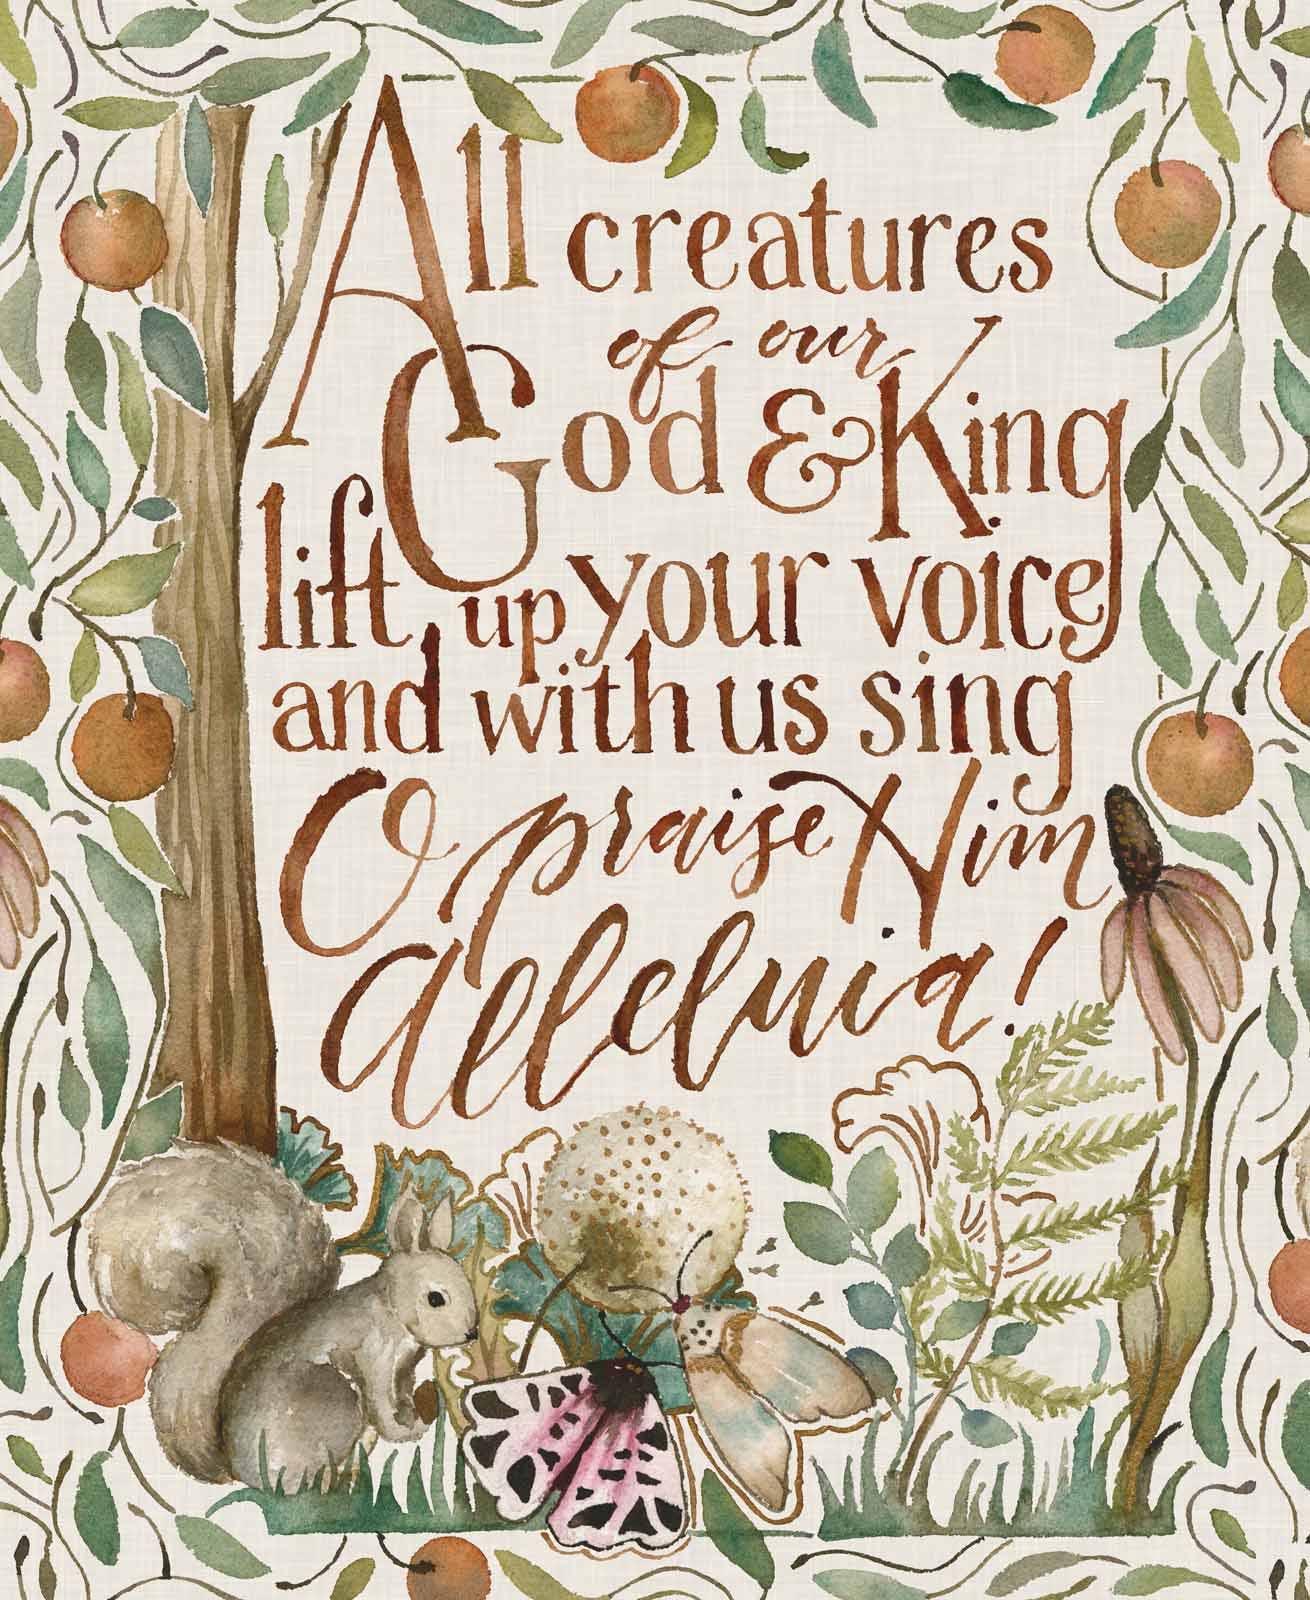 All creatures
of our
God & King
lift up your voice
and with us sing
O praise Him
Alleluia!